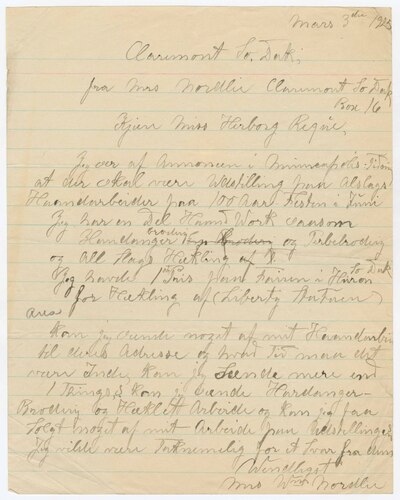 Mars 3die 1925
Claremont So. Dak;
fra Mrs Nordlie Claremont So. Dak,
Box 16
Kjære Miss Herborg Reque,
Jeg ser af Annonsen i Minneapolis
at der skal være Udstilling paa Alslags
Haandarbeider paa 100 Aars Festen i Juni
Jeg har en Del Hand Work saasom
Hardanger brodring og
og All Slags Hækling af
Jeg havde Pris paa Fairen i Huron So Dak
for Hækling af (Liberty Statuen)
Kan jeg sende noget af mit Haandarbei
til deres Adresse og hvad Tid maa det
være Inde, kan jeg Sende mere end
1 Thing, & kan jeg sende Hardanger-
Brodring og Hæklett Arbeide og kan jeg faa
Solgt noget af mit Arbeide paa Udstillingen
Jeg vilde være Taknemelig for et Svar fra dem
Venligst
Mrs Wm Nordlie